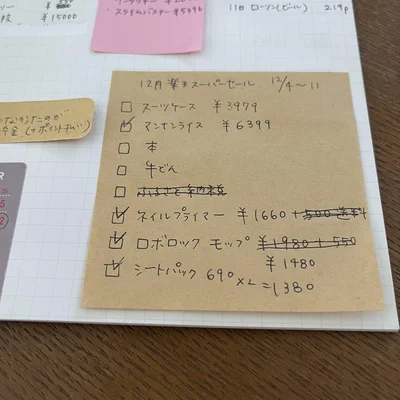 ¥15000
・スライムバスター ¥5896
11日 ローソン(ビール) 219P
12月 楽天スーパーセール 12/4〜11
☐ スーツケース ¥3979
☑ マンナンライス ¥6399
☐ 本
☐ 牛どん
☐ ふるさと納税
☑ ネイルプライマー ¥1660+500送料
☑ ロボロック モップ ¥1980+550
¥1480
☑ シートパック 690×2=1380